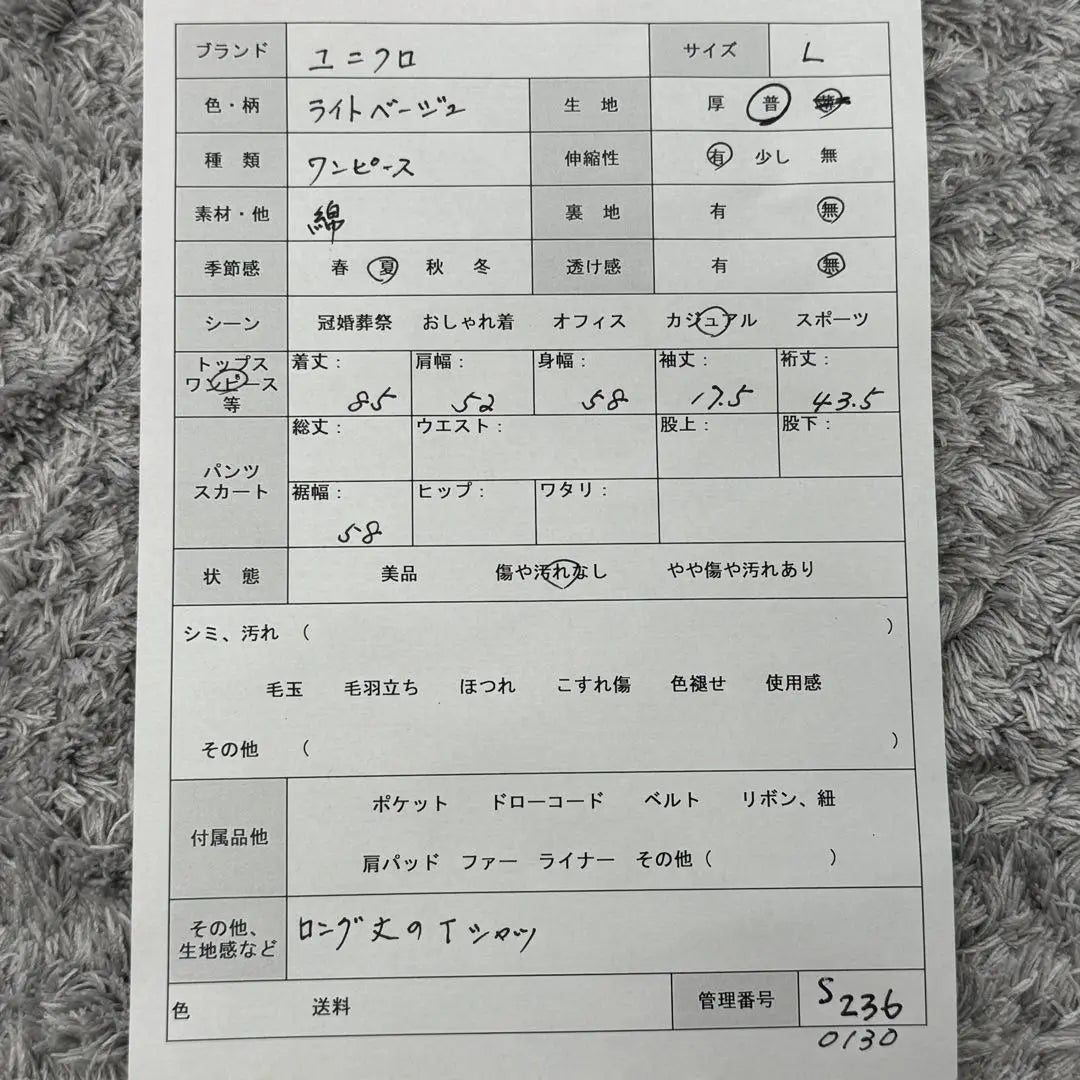 ブランド ユニクロ サイズ L
色・柄 ライトベージュ 生 地 厚 普 薄
種 類 ワンピース 伸縮性 有 少し 無
素材・他 綿 裏 地 有 無
季節感 春 夏 秋 冬 透け感 有 無
シーン 冠婚葬祭 おしゃれ着 オフィス カジュアル スポーツ
トップス
ワンピース
等
着丈: 肩幅: 身幅: 袖丈: 裄丈:
85 52 58 17.5 43.5
パンツ
スカート
総丈: ウエスト: 股上: 股下:
裾幅: ヒップ: ワタリ:
58
状 態 美品 傷や汚れなし やや傷や汚れあり
シミ、汚れ ( )
毛玉 毛羽立ち ほつれ こすれ傷 色褪せ 使用感
その他 ( )
付属品他 ポケット ドローコード ベルト リボン、紐
肩パッド ファー ライナー その他 ( )
その他、
生地感など
ロング丈のTシャツ
色 送料 管理番号 S236
0130